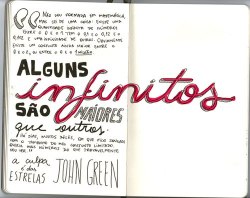 NÃO SOU FORMADA EM MATEMÁTICA,
MAS SEI DE UMA COISA: EXISTE UMA
QUANTIDADE INFINITA DE NÚMEROS
ENTRE 0 E 1. TEM 0,1 E 0,12 E
0,112 E UMA INFINIDADE DE OUTROS. OBVIAMENTE,
EXISTE UM CONJUNTO AINDA MAIOR ENTRE O
0 E O 2, OU ENTRE O 0 E O 1 MILHÃO.
ALGUNS
infinitos
SÃO MAIORES
que outros.
HÁ DIAS, MUITOS DELES, EM QUE FICO ZANGADA
COM O TAMANHO DO MEU CONJUNTO ILIMITADO.
QUERIA MAIS NÚMEROS DO QUE PROVAVELMENTE
VOU TER.
a culpa
é das
ESTRELAS
JOHN GREEN